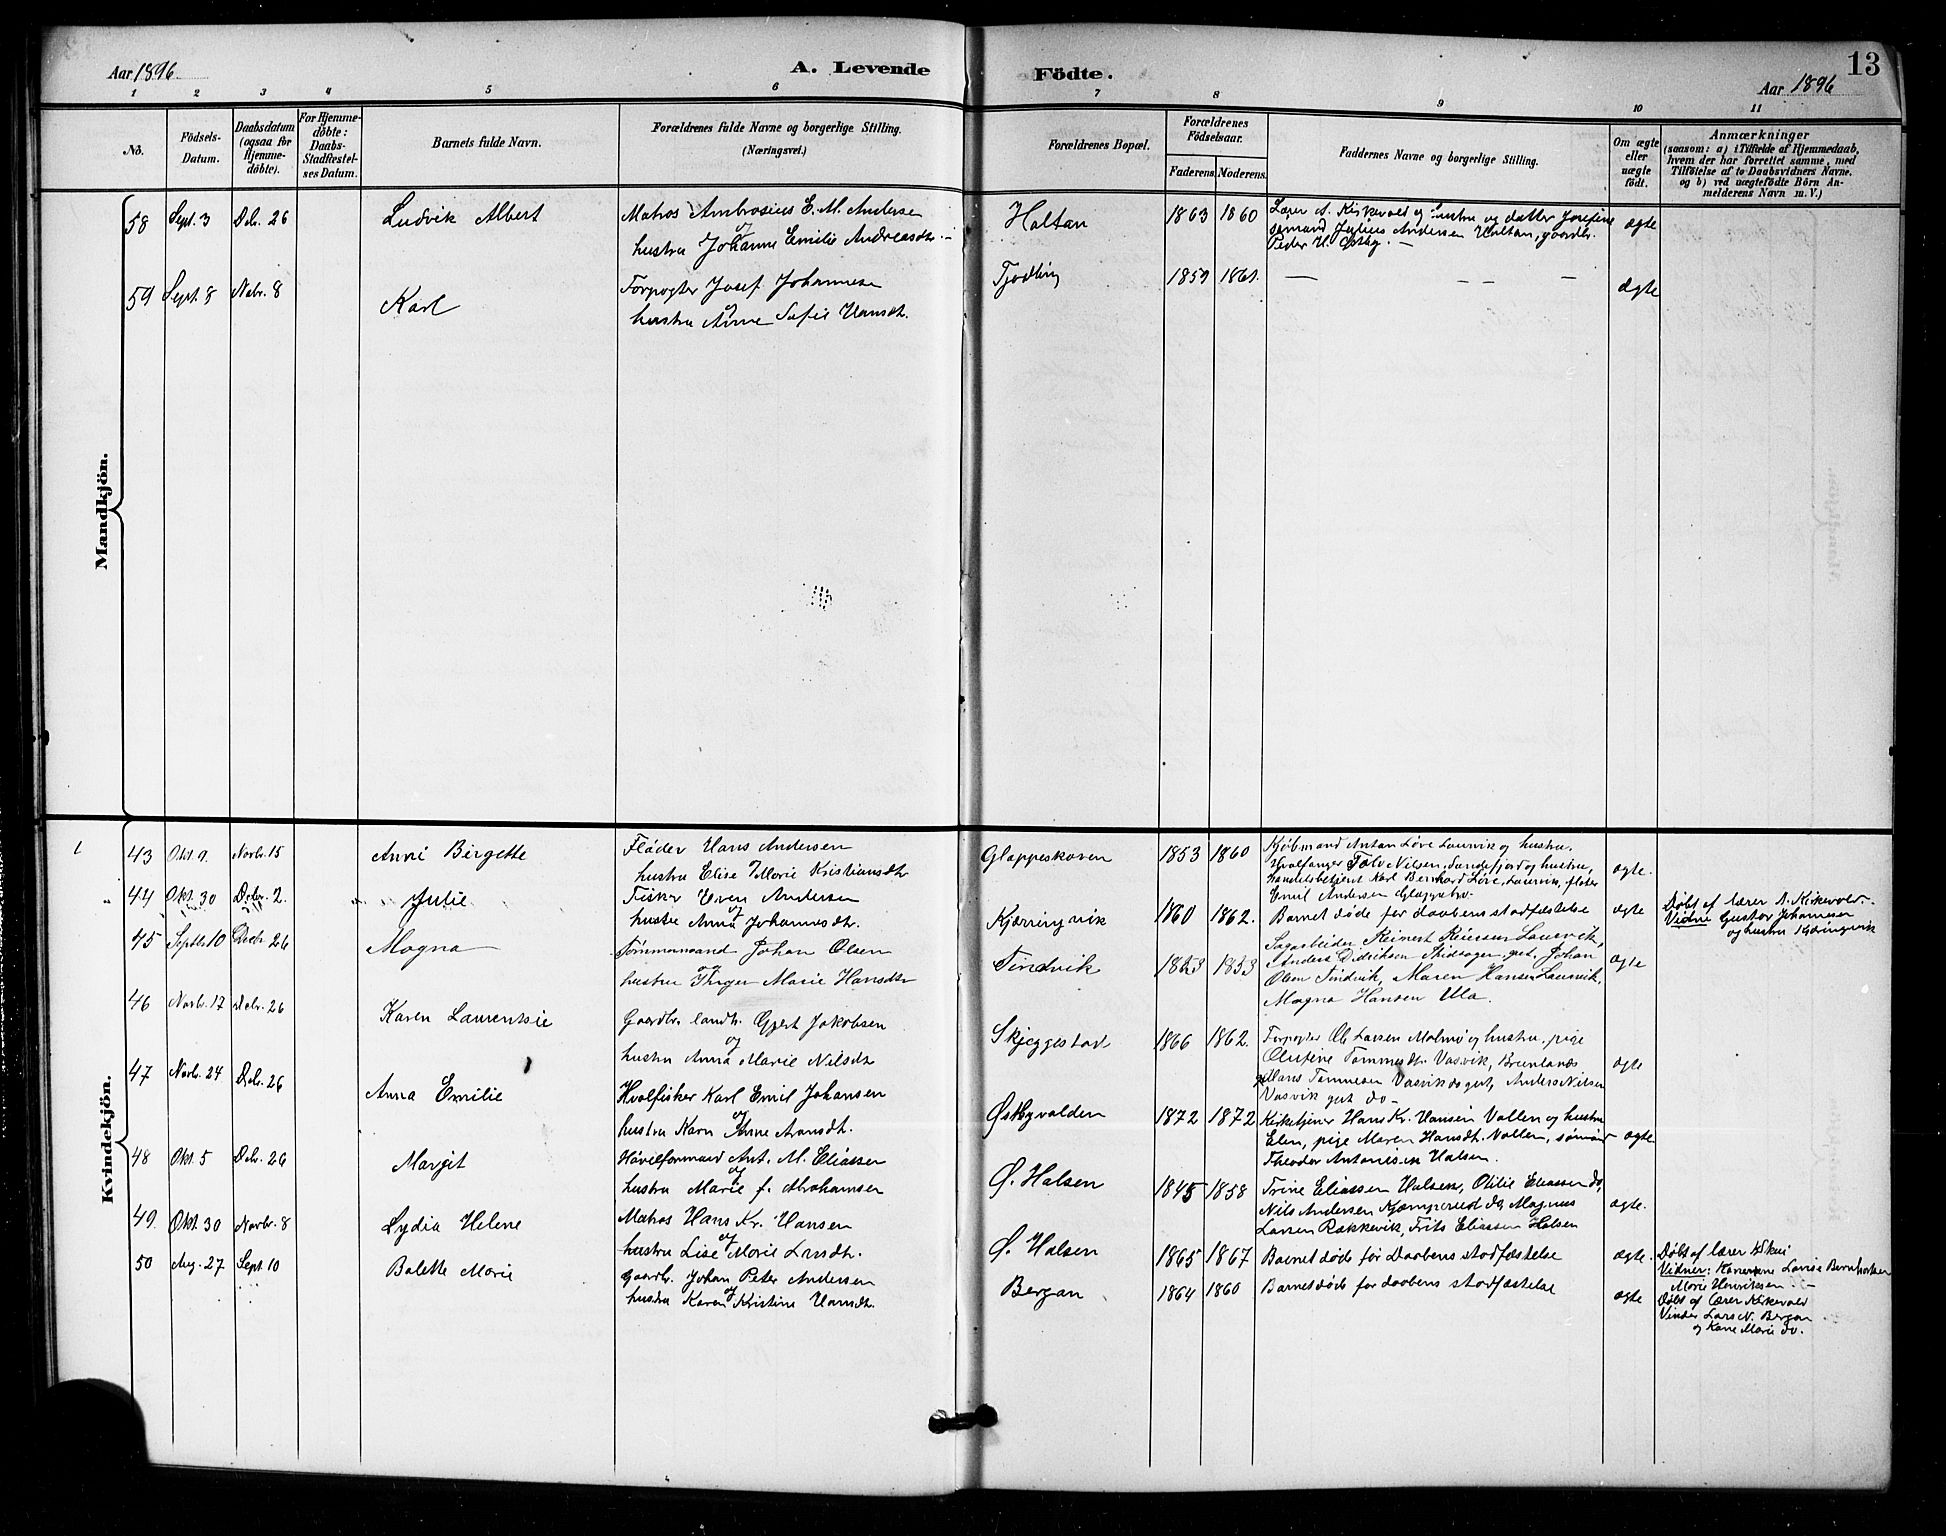 Aar 1896
A. Levende
Födte.
Aar 1896
13
1 2 3 4 5 6 7 8 9 10 11
No.
Födsels-
Datum.
Daabsdatum
(ogsaa for
Hjemme-
döbte).
For Hjemme-
döbte:
Daabs-
Stadfæstel-
ses Datum.
Barnets fulde Navn.
Forældrenes fulde Navne og borgerlige Stilling.
(Næringsvei.)
Forældrenes Bopæl.
Forældrenes
Födselsaar.
Faderens. Moderens.
Faddernes Navne og borgerlige Stilling.
Om ægte
eller
uægte
födt.
Anmærkninger
(saasom: a) i Tilfælde af Hjemmedaab,
hvem der har forrettet samme, med
Tilföielse af to Daabsvidners Navne.
og b) ved uægtefödte Börn An-
melderens Navn m. V.)
Mandkjön.
58 Sept. 3 Db. 26 Ludvik Albert
Matros Ambrosius E. M. Andersen
og
hustru Johanne Emilie Andreasdtr.
Holtan 1863 1860
Lærer A. Kirkevold og hustru og datter Josefine
sømand Julius Andersen Holtan, gaardbr.
Peder H. Østby. —
ægte
59 Sept. 8 Nobr. 8 Karl
Forpagter Josef Johannesen
og
hustru Anne Sofie Hansdt.
Tjødling 1859 1861. — — — — ægte
Kvindekjön.
1 43 Okt. 9. Novbr. 15 Anne Birgette
Fløder Hans Andersen
hustru Elise Marie Kristiansdtr
Glappeskoven 1853 1860
Kjøbmand Anton Løve Laurvik og hustru.
Hvalfanger Nilsen, Sandefjord og hustru,
handelsbetjent Karl Bernhard Løve, Laurvik, fløter
Emil Andersen
ægte.
44 Okt. 30 Decbr. 2. Julie
Fisker Even Andersen
og
hustru Anna Johannsdt.
Kjærringvik 1860 1862.
Barnet døde før daabens stadfæstelse
ægte
Døbt af lærer A. Kirkevold.
Vidne Gustav Johannesen
og hustru Kjæringvik
45 Septbr 10 Decbr 26 Magna
Tømmermand Johan Olsen
og
hustru Marie Hansdtr
Tindvik 1853 1853
Sagarbeider Reinert Reiersen Laurvik,
Anders Didriksen gut, Johan
Olsen Tindvik, Maren Hansen Laurvik,
Magna Hansen Ula.
ægte
46 Novbr. 17 Decbr. 26 Karen Laurentsie
Gaardbr. landh. Gjert Jakobsen
og
hustru Anna Marie Nilsdt
Skjeggestad 1866 1862.
Forpagter Ole Larsen Malmø og hustru, pige
Olufine Tommesdt. Vasvik,
Hans Tommesen Vasvik do gut, Anders Nilsen
Vasvik gut do —
ægte
47 Novbr. 24 Decbr. 26 Anna Emilie
Hvalfisker Karl Emil Johansen
og
hustru Karn Anne Aronsdt.
Østbyvalden 1872 1872
Kirketjener Hans Kr. Hansen Vallen og hustru
Elen, pige Maren Hansdt. Vallen, sømand
Theodor Antonisen Halsen.
ægte
48 Okt. 5 Decbr. 26 Margit
Høvelformand Ant. M. Eliassen
og
hustru Marie f. Abrahamsen
Ø. Halsen 1845 1858
Trine Eliassen Halsen, Otilie Eliassen do,
Nils Andersen Kjæmperud do, Magnus
Larsen Rakkevik, Frits Eliassen Halsen
ægte.
49. Okt. 30 Novbr. 8 Lydia Helene
Matros Hans Kr. Hansen
og
hustru Lise Marie Larsdt.
Ø. Halsen 1865 1867
Barnet døde før Daabens stadfæstelse
ægte.
Døbt af lærer
Vidner: Louise Bernhardsen
Marie Henriksen —
50 Aug. 27 Sept. 10 Bolette Marie
Gaardbr. Johan Peter Andersen
og
hustru Karen Kristine Hansdt.
Bergan 1864 1860
Barnet døde før daabens stadfæstelse
ægte
Døbt af Lærer Kirkevold
Vidner Lars N. Bergan
og Karen Marie do.